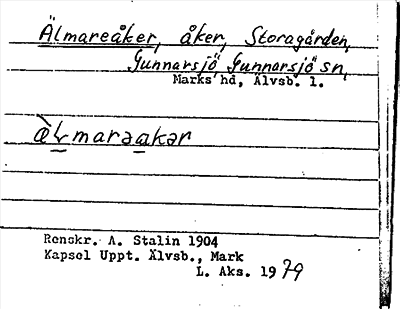 Älmareåker, åker, Storagården,
Gunnarsjö, Gunnarsjö sn,
Marks hd, Älvsb. l.
æ̀Lmaraakər
Renskr. A. Stalin 1904
Kapsel Uppt. Älvsb., Mark
L. Aks. 1979